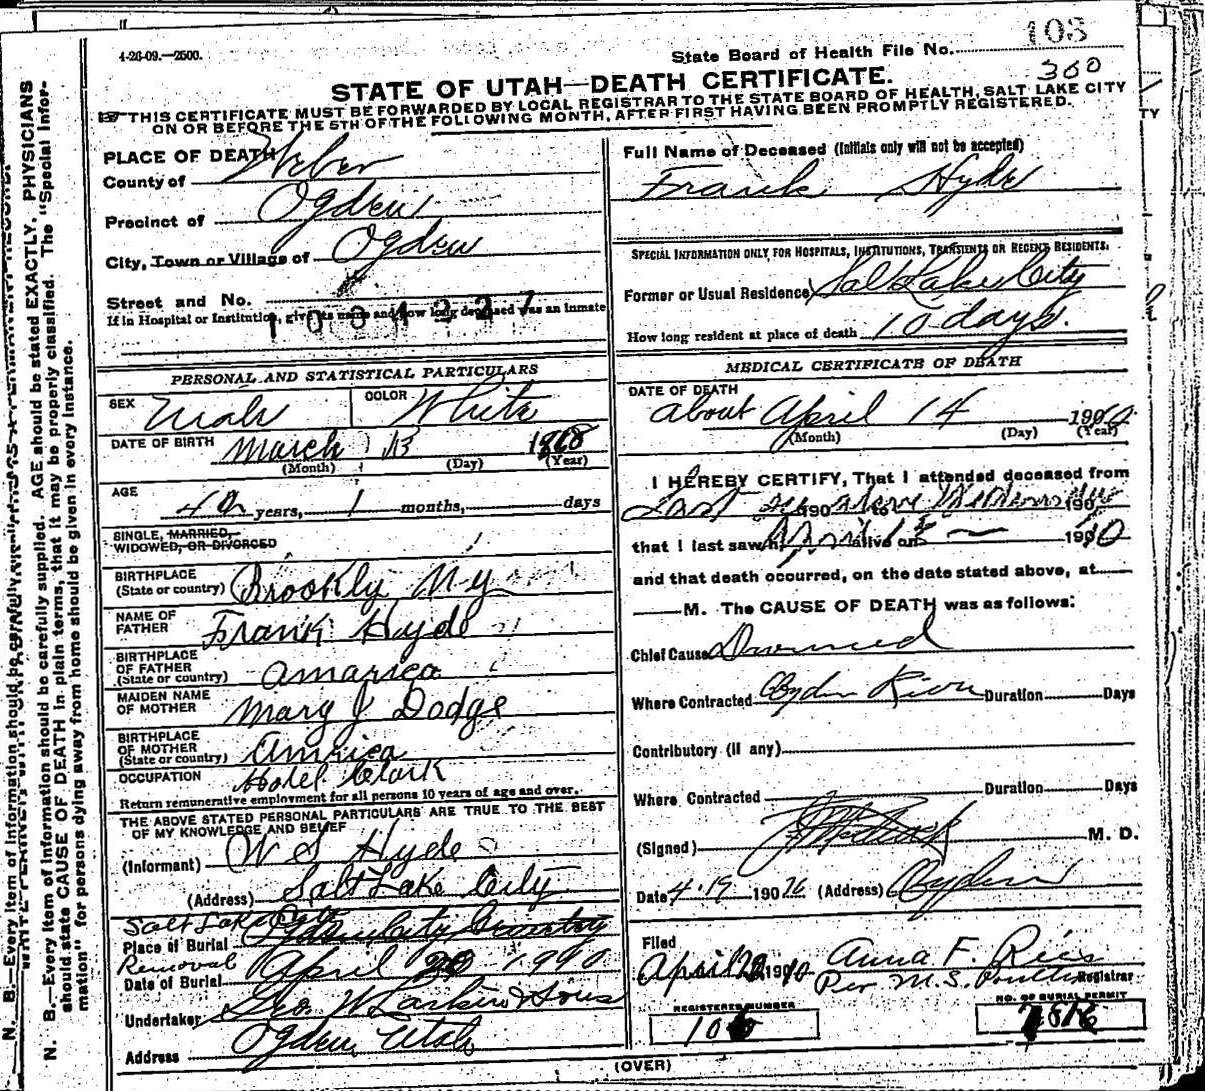 4-26-09.—2500.
State Board of Health File No. 103
360
STATE OF UTAH—DEATH CERTIFICATE.
THIS CERTIFICATE MUST BE FORWARDED BY LOCAL REGISTRAR TO THE STATE BOARD OF HEALTH, SALT LAKE CITY
ON OR BEFORE THE 5TH OF THE FOLLOWING MONTH, AFTER FIRST HAVING BEEN PROMPTLY REGISTERED.
PLACE OF DEATH
County of Weber
Precinct of Ogden
City, Town or Village of Ogden
Street and No.
If in Hospital or Institution, give its name and how long deceased was an inmate
PERSONAL AND STATISTICAL PARTICULARS
SEX Male COLOR White
DATE OF BIRTH March 13 1868
(Month) (Day) (Year)
AGE
years, 1 months, days
SINGLE, MARRIED,
WIDOWED, OR DIVORCED
BIRTHPLACE
(State or country) Brookly N y
NAME OF
FATHER Frank Hyde
BIRTHPLACE
OF FATHER
(State or country) amarica
MAIDEN NAME
OF MOTHER Mary J Dodge
BIRTHPLACE
OF MOTHER
(State or country) America
OCCUPATION Hotel Clark
Return remunerative employment for all persons 10 years of age and over.
THE ABOVE STATED PERSONAL PARTICULARS ARE TRUE TO THE BEST
OF MY KNOWLEDGE AND BELIEF
(Informant) W S Hyde
(Address) Salt Lake City
Salt Lake City
Place of Burial Ogden City Cemetery
Removal
Date of Burial April 20 1910
Undertaker Geo W Larkin & Sons
Address Ogden Utah
Full Name of Deceased (Initials only will not be accepted)
Frank Hyde
SPECIAL INFORMATION ONLY FOR HOSPITALS, INSTITUTIONS, TRANSIENTS OR RECENT RESIDENTS.
Former or Usual Residence Salt Lake City
How long resident at place of death 10 days.
MEDICAL CERTIFICATE OF DEATH
DATE OF DEATH
about April 14 1910
(Month) (Day) (Year)
I HEREBY CERTIFY, That I attended deceased from
190 to 190
that I last saw h alive on April 1910
and that death occurred, on the date stated above, at
M. The CAUSE OF DEATH was as follows:
Chief Cause Drowned
Where Contracted Ogden River Duration Days
Contributory (if any)
Where Contracted Duration Days
(Signed) M. D.
Date 4-19 190 (Address) Ogden
Filed
April 20 1910 Anna F. Reis
Per M. S. Registrar
REGISTERED NUMBER
NO. OF BURIAL PERMIT
(OVER)
N. B.—Every item of information should be carefully supplied. AGE should be stated EXACTLY. PHYSICIANS
should state CAUSE OF DEATH in plain terms, that it may be properly classified. The "Special Infor-
mation" for persons dying away from home should be given in every instance.